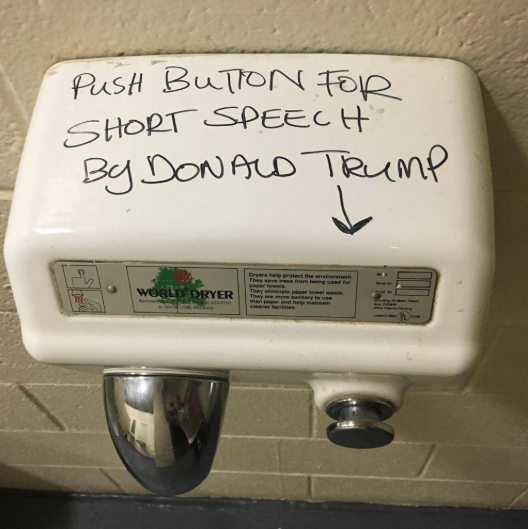 PUSH BUTTON FOR
SHORT SPEECH
By DONALD TRUMP
WORLD DRYER
Dryers help protect the environment.
They save trees from being used for
paper towels.
They eliminate paper towel waste.
They are more sanitary to use
than paper and help maintain
cleaner facilities.